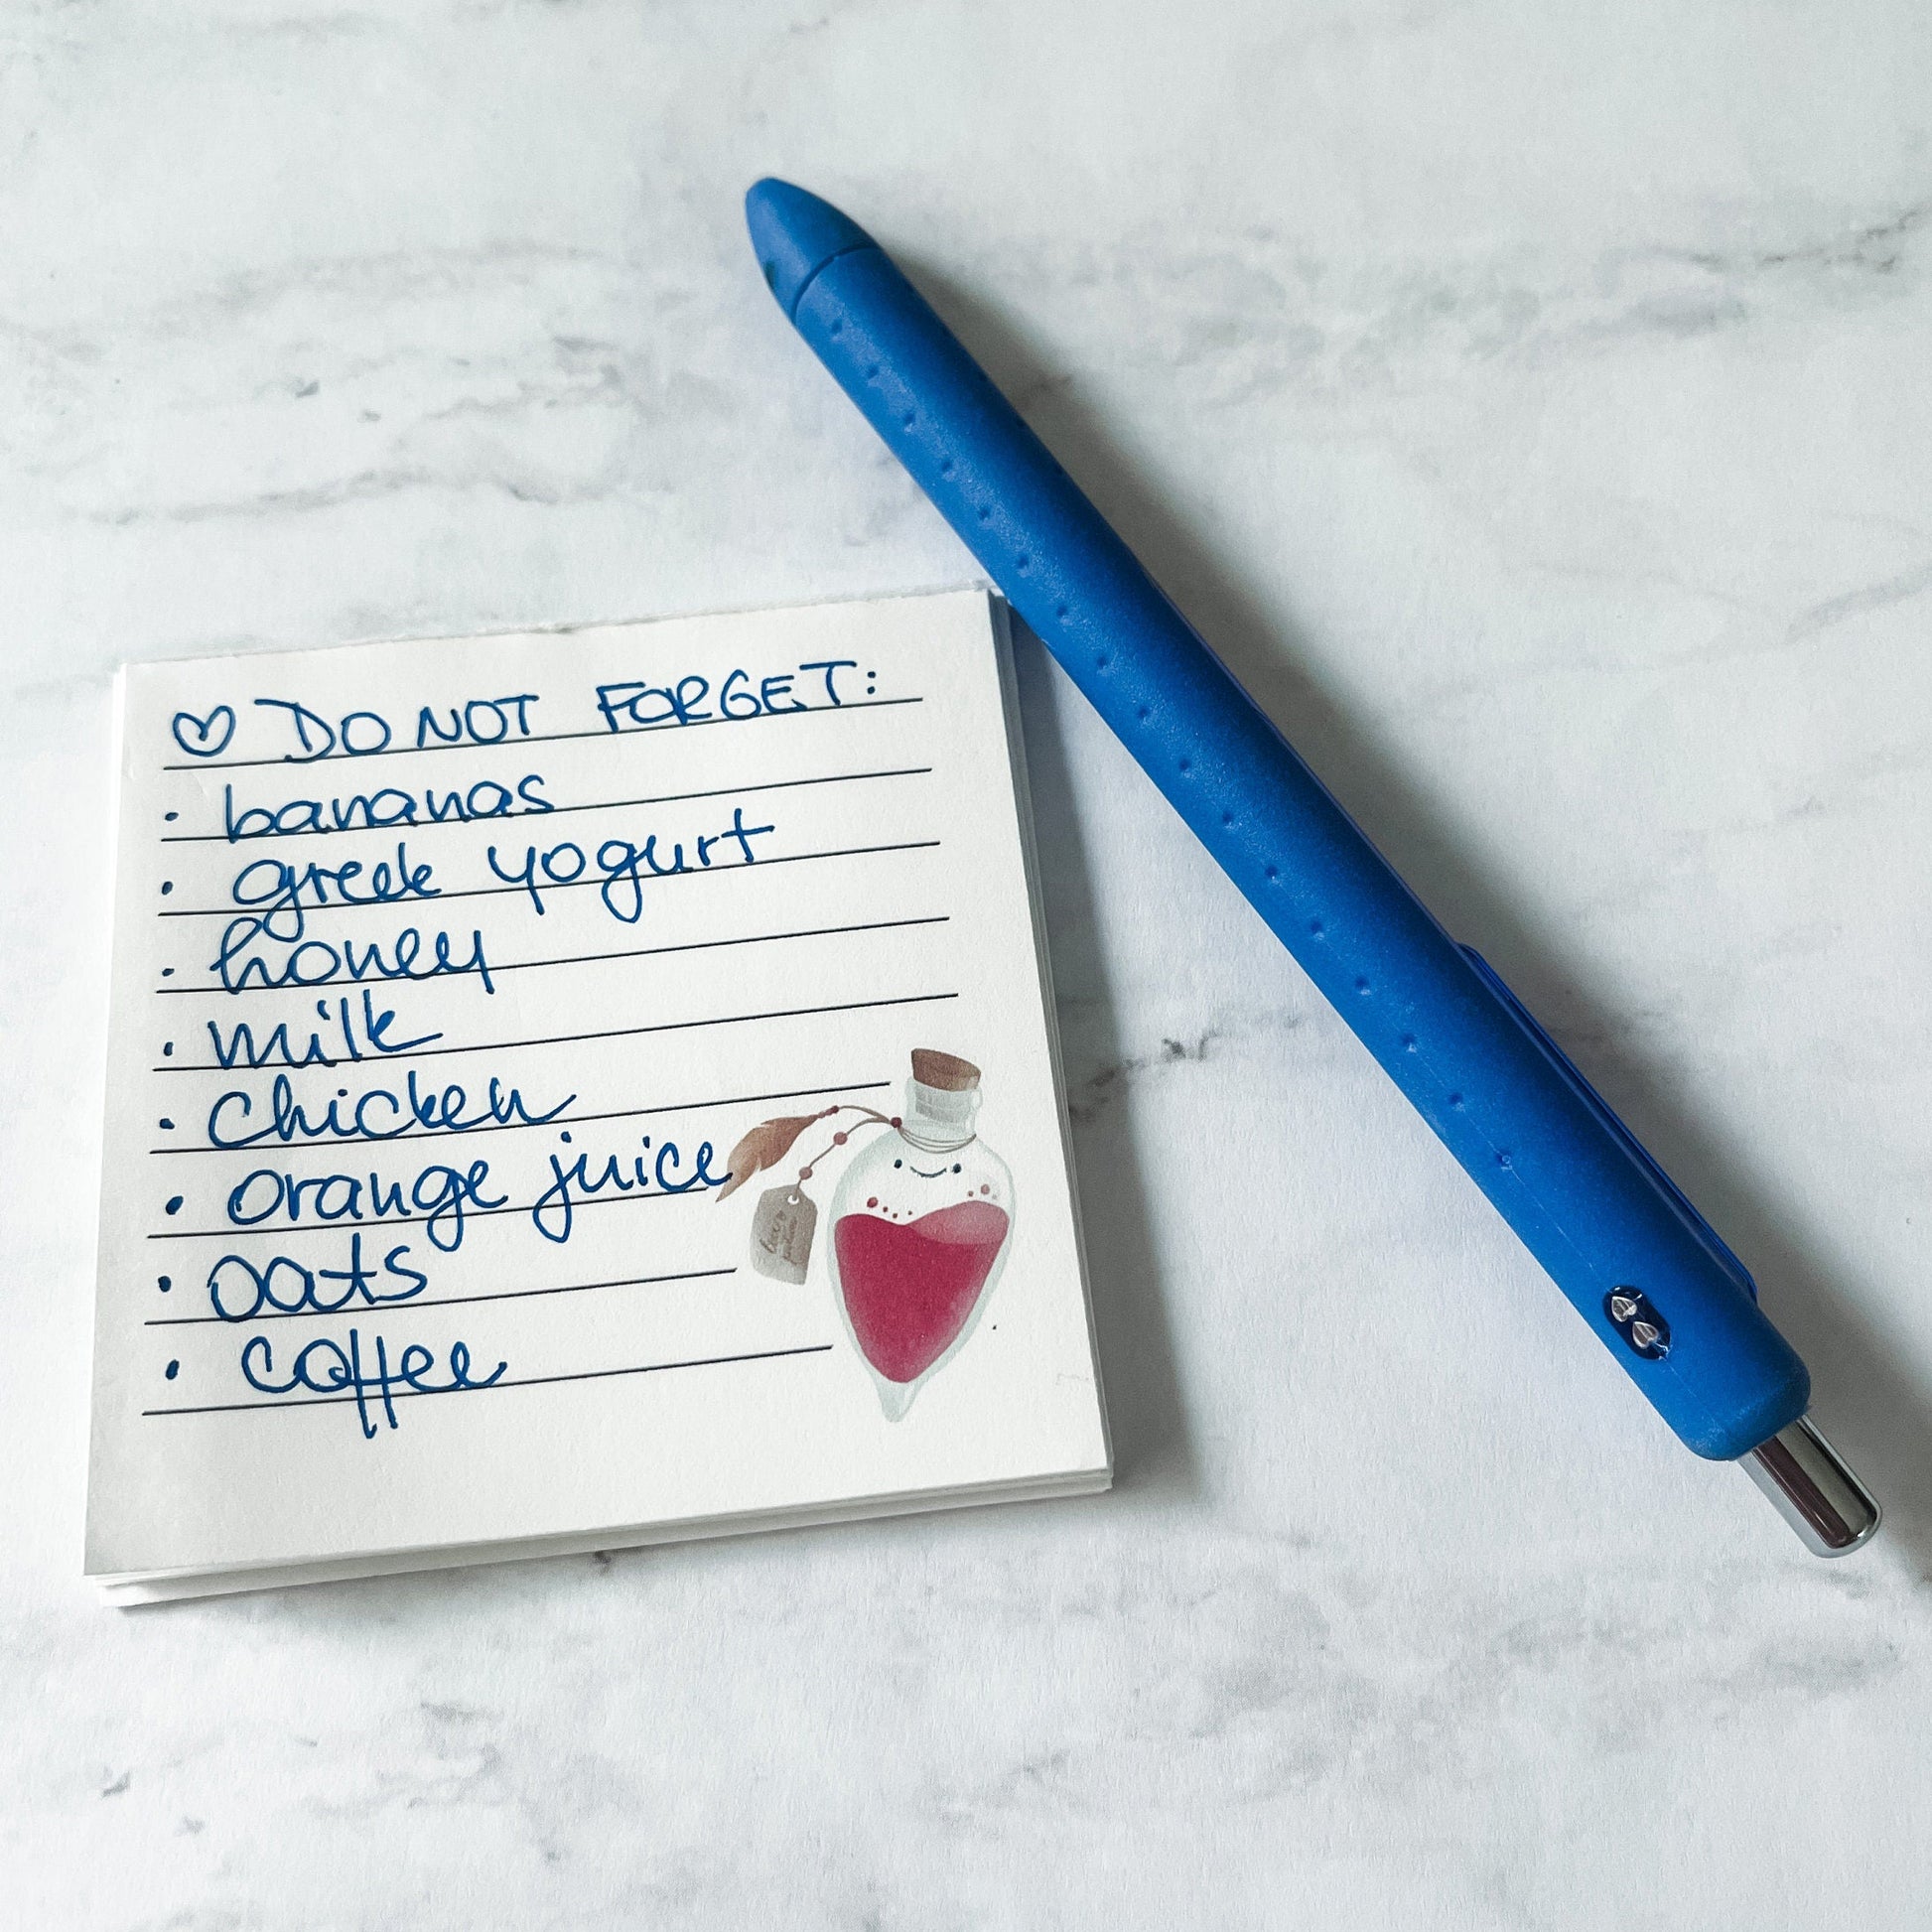 ♡ DO NOT FORGET:
· bananas
· greek yogurt
· honey
· milk
· chicken
· orange juice
· oats
· coffee